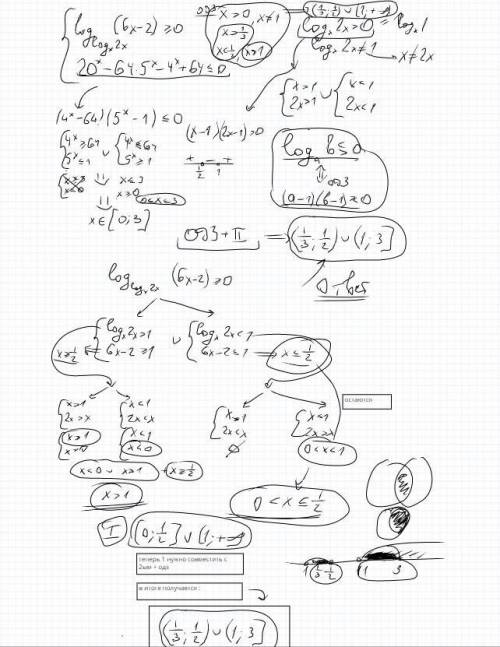 log_{log_x 2x} (6x-2) ≥ 0
20^x - 64·5^x - 4^x + 64 ≤ 0
одз
x > 0, x ≠ 1
x > 1/3
x < 1/2, x > 1
(1/3; 1/2) ∪ (1; +∞)
log_x 2x > 0 = log_x 1
log_x 2x ≠ 1 → x ≠ 2x
{ x > 1
2x > 1 ∪ { x < 1
2x < 1
(x-1)(2x-1) > 0
+ - +
1/2 1
(4^x - 64)(5^x - 1) ≤ 0
{ 4^x ≥ 64
5^x ≤ 1 ∪ { 4^x ≤ 64
5^x ≥ 1
x ≤ 3
x ≥ 0
0 ≤ x ≤ 3
x ∈ [0; 3]
log_a b ≤ 0
⇕ одз
(a-1)(b-1) ≤ 0
одз + II ⇒ (1/3; 1/2) ∪ (1; 3]
Ответ
log_{log_x 2x} (6x-2) ≥ 0
{ log_x 2x > 1
6x-2 ≥ 1 ∪ { log_x 2x < 1
6x-2 ≤ 1 ⇒ x ≤ 1/2
x ≥ 1/2
{ x > 1
2x > x
x > 1
{ x < 1
2x < x
x < 1
x < 0
{ x > 1
2x < x
∅
{ x < 1
2x > x
0 < x < 1
остаются
x < 0 ∪ x > 1 + x ≥ 1/2
x > 1
0 < x ≤ 1/2
I (0; 1/2] ∪ (1; +∞)
теперь 1 нужно совместить с
2ым + одз
в итоге получается :
(1/3; 1/2) ∪ (1; 3]